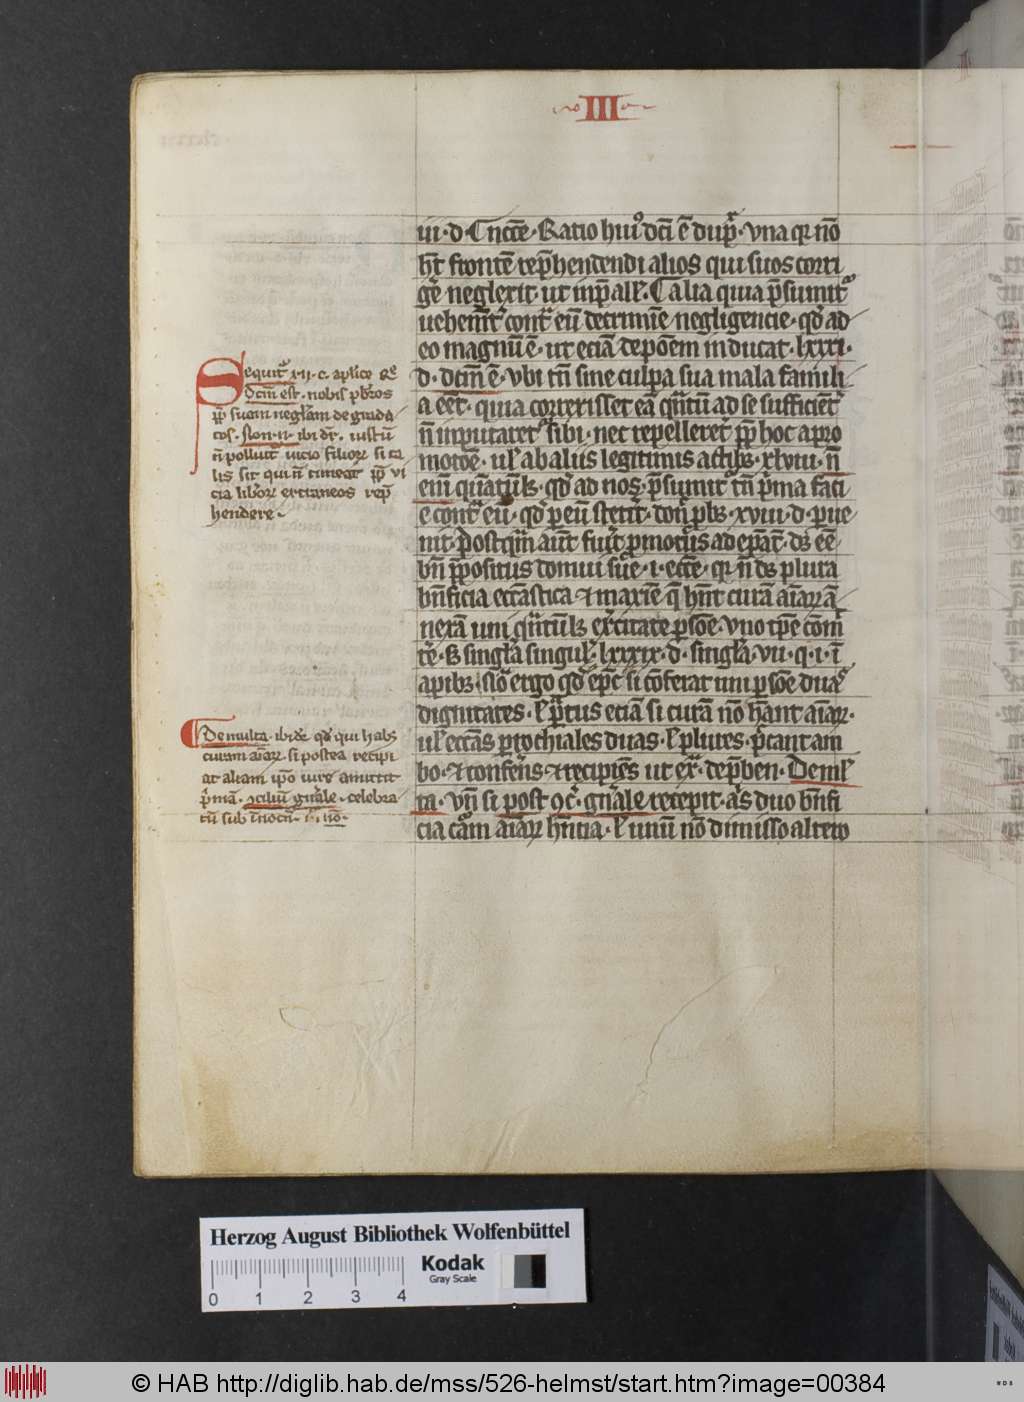 III
iii · d · Cnccē · Ratio hui9 dcī ē dupl'r · vna qr nō
hn̄t frontē repħendendi alios qui suos corri
gē neglexit · ut in p̄alle · Talia quia p̄sumit~
uehemēt~ cont~ eū decrimīe negligencie · qd ad
eo magnū ē · ut eciā depōem inducat · lxxxi ·
d · dcm̄ ē · vbi tn̄ sine culpa sua mala famili
a eēt · quia correxisset eā qn̄tū ad se sufficiēt~
n̄ imputaret~ sibi · nec repelleret~ ꝓp̄ hoc a pro
motōe · ul' ab aliis legitimis actibꝫ · xlviii · n̄
em̄
e cont~ eū · qd p eū stetit · p̄bꝫ · xviii · d · p ue
nit · Postqm̄ aūt fu'it pmotus ad ep̄at · dꝫ eē
bn̄ p̄positus domui sue · i · eccē · qr n̄ dꝫ plura
bn̄ficia eccāstica ⁊ maxīe q̄ hn̄t curā aīaꝝ ā
nexā uni qn̄tūlꝫ ex'citate psōe · vno tp̄e cōm̄
t'e · Sꝫ singl'a singul' · lxxxix · d · singl'a · vii · q · i · ī
apibꝫ · Nō ergo qd ep̄c si cōferat uni psōe duas
dignitates · l' p̄r̄tus eciā si curā nō hēant aīaꝝ ·
ul' eccās prochiales duas · l' plures · p̄cant am
bo · ⁊ confer̄s · ⁊ recipiēs ut ex̄ · de p̄ben · De ml'
ta · Vn̄ si post ꝯc' · gn̄ale recepit · aīs duo bn̄fi
cia cām aīaꝝ hn̄cia · l' unū nō dimisso altero
Sequit~ xii · c · ap'lice se
dcm̄ est · nobis p̄bros
ꝓp̄ suam neglām degrada
tos · Non · n · ibi dr̄ · iustū
n̄ polluit~ vicio filioꝝ si ta
lis sit qui n̄ timeat ip̄ vi
cia libeoꝝ extraneos rep̄
hendere ·
De multa · ibidē qd qui habꝫ
curam aīaꝝ · si postea recipi
at aliam ip̄o iure amittit
p̄mā · ꝯciliū gn̄ale · celebra
tū sub īnocn̄ · iii · nō ·
Herzog August Bibliothek Wolfenbüttel
0 1 2 3 4
Kodak
Gray Scale
© HAB http://diglib.hab.de/mss/526-helmst/start.htm?image=00384